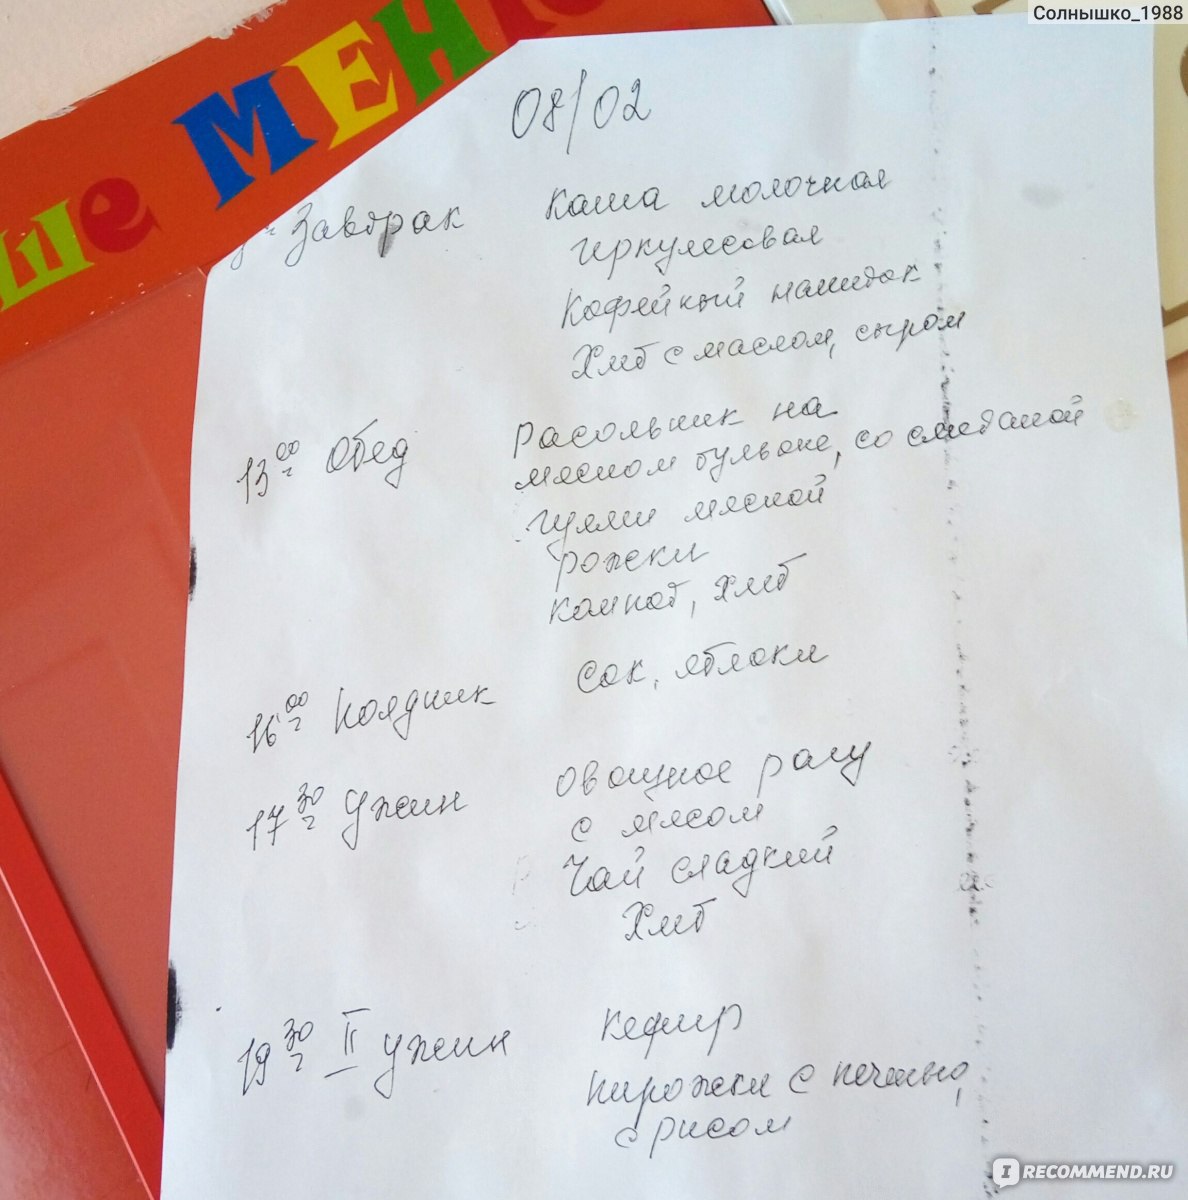 Солнышко_1988
ше МЕН
08/02
Завтрак
Каша молочная
геркулесовая
Кофейный напиток
Хлеб с маслом, сыром
13 00 ч Обед
Расольник на
мясном бульоне, со сметаной
гуляш мясной
рожки
компот, хлеб
16 00 ч Полдник
Сок, яблоки
17 30 ч Ужин
Овощное рагу
с мясом
Чай сладкий
Хлеб
19 30 ч II ужин
Кефир
Пирожки с печенью,
с рисом
IRECOMMEND.RU